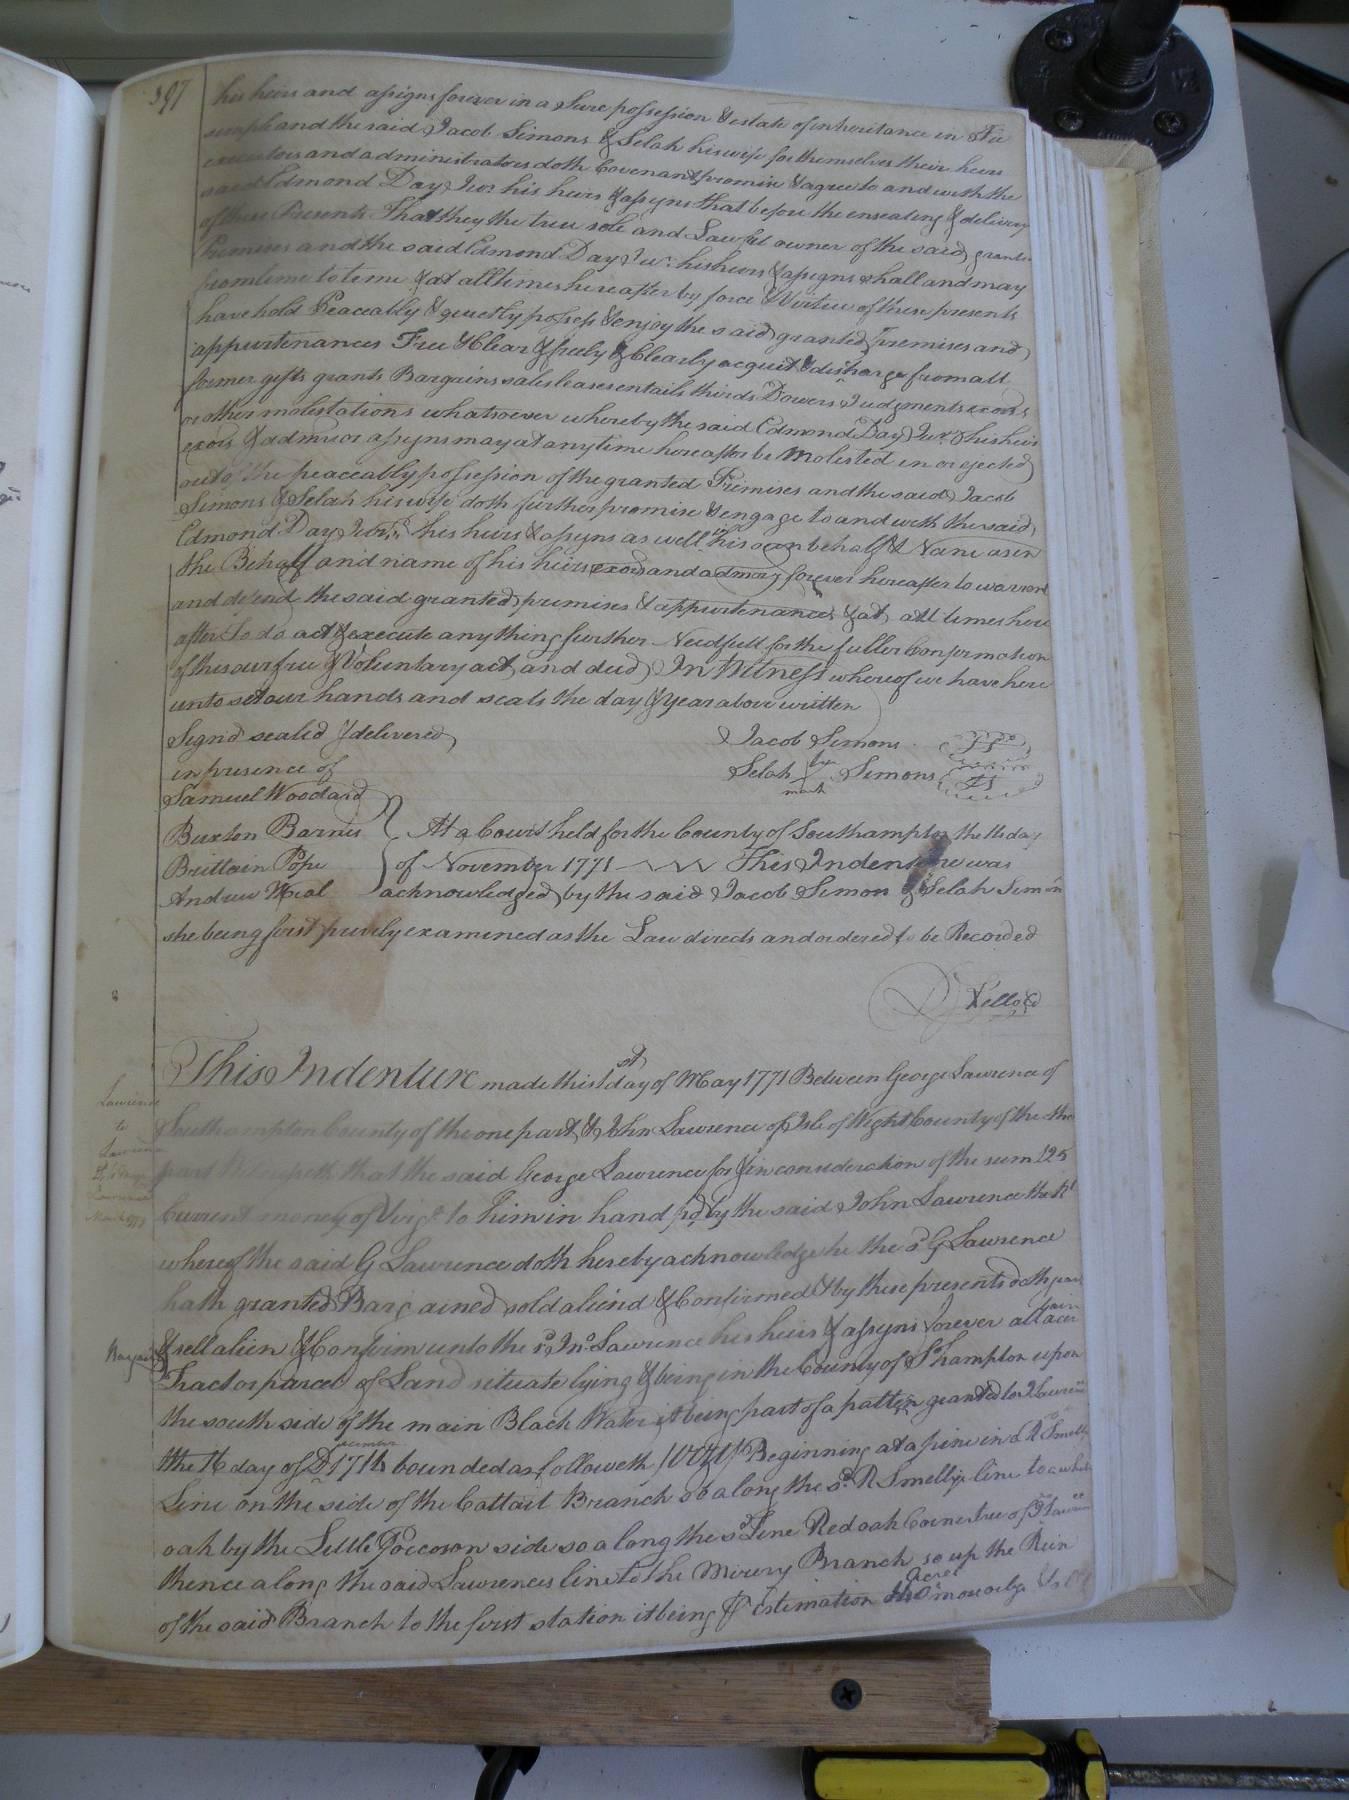 397
his heirs and assigns forever in a Sure possession & estate of inheritance in Fee
simple and the said Jacob Simons & Selah his wife for themselves their heirs
executors and administrators doth Covenant promise & agree to and with the
said Edmond Day Junr. his heirs & assigns that before the ensealing & delivery
of these Presents That they the true sole and Lawful owner of the said granted
Premises and the said Edmond Day Junr. his heirs & assigns shall and may
from time to time & at all times hereafter by force & Virtue of these presents
have hold Peaceably & quietly possess & enjoy the said granted Premises and
appurtenances Free & Clear & freely & Clearly acquit & discharge from all
former gifts grants Bargains sales leases entails thirds Dowers Judgments
or other molestations whatsoever whereby the said Edmond Day Junr. & his heirs
exors & admrs or assigns may at any time hereafter be Molested in or ejected
out of the peaceably possession of the granted Premises and the said Jacob
Simons & Selah his wife doth further promise & engage to and with the said
Edmond Day Junr. his heirs & assigns as well in his own behalf & Name as in
the Behalf and name of his heirs exors and admors forever hereafter to warrant
and defend the said granted premises & appurtenances & at all times here
after to do act & execute any thing further Needfull for the fuller Confirmation
of this our free & Voluntary act and deed In Witness whereof we have here
unto set our hands and seals the day & year above written
Signd sealed & delivered Jacob Simons
in presence of Selah her mark Simons
Samuel Woodard
Buxton Barnes At a Court held for the County of Southampton the day
Brittain Pope of November 1771 This Indenture was
Andrew acknowledged by the said Jacob Simon & Selah Simon
she being first privily examined as the Law directs and ordered to be Recorded
This Indenture made this 1st day of May 1771 Between George Lawrence of
Lawrence
to
Lawrence
Southampton County of the one part & John Lawrence of Isle of Wight County of the other
part Witnesseth that the said George Lawrence for & in consideration of the sum 125
Current money of Virga. to him in hand pd by the said John Lawrence the Rt.
whereof the said G Lawrence doth hereby acknowledge he the sd G Lawrence
hath granted Bargained sold aliend & Confirmed & by these presents doth
& sell alien & Confirm unto the sd Jno. Lawrence his heirs & assigns forever a
Tract or parcel of Land situate lying & being in the County of Shampton upon
the south side of the main Black Water it being part of a patten granted to
the 16 day of December bounded as followeth (Vizt) Beginning at a pine in R Smellys
Line on the side of the Cattail Branch so along the sd. R Smellys line to a white
oak by the Little Poccoson side so along the sd Line Red oak Corner tree of
thence along the said Lawrences line to the Mirery Branch so up the Run
of the said Branch to the first station it being P Estimation Acres more or less